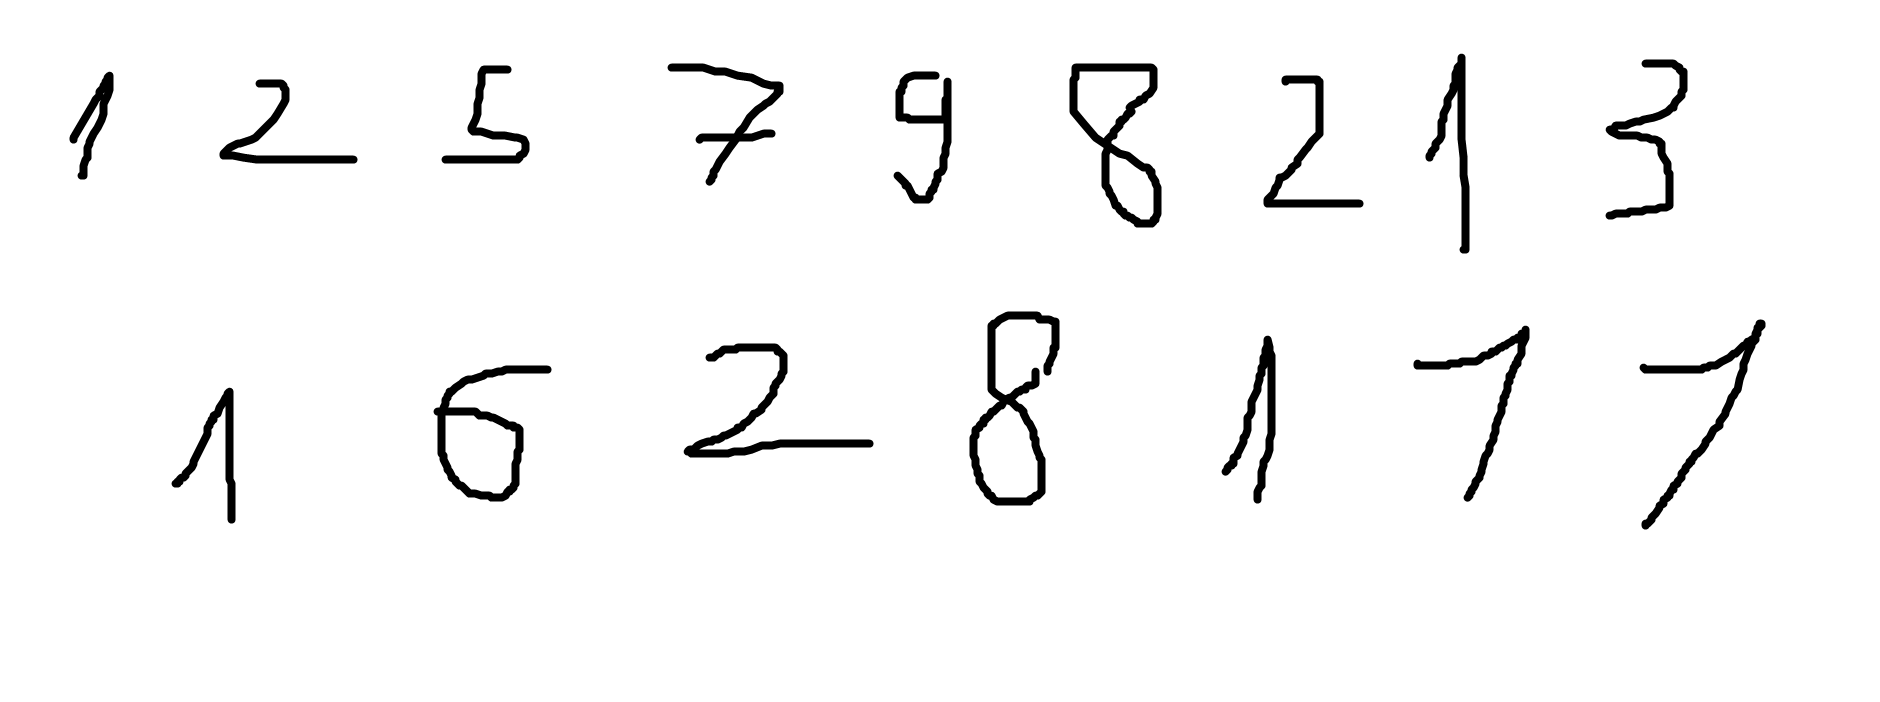 1 2 5 7 9 8 2 1 3
1 6 2 8 1 7 7